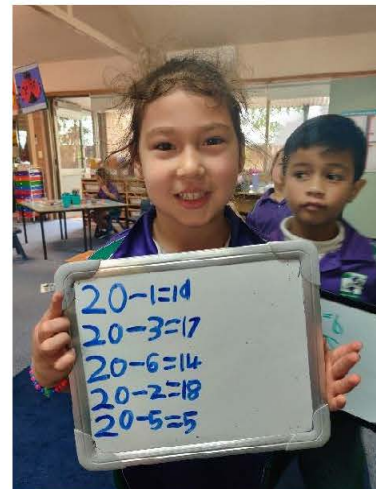 20-1=19
20-3=17
20-6=14
20-2=18
20-5=5
=6